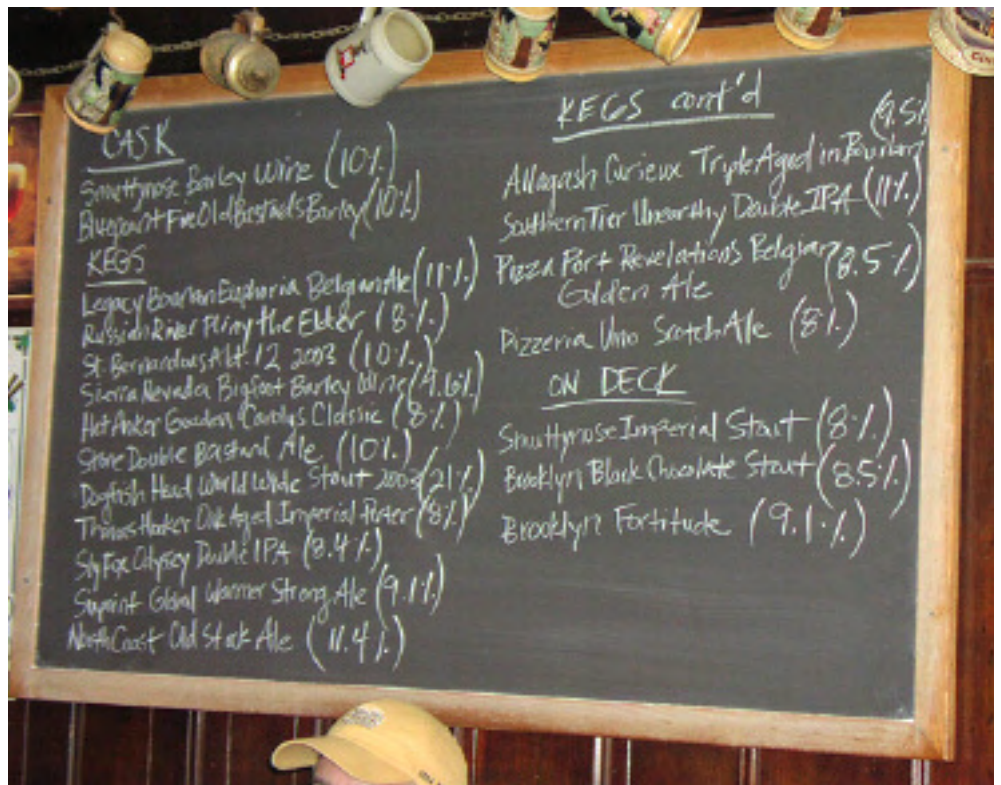 CASK
Smuttynose Barley Wine (10%)
Bluepoint Five Old Bastards Barley (10%)
KEGS
Legacy Bourbon Euphoria Belgian Ale (11%)
Russian River Pliny the Elder (8%)
St. Bernardous Abt. 12 2003 (10%)
Sierra Nevada Bigfoot Barley Wine (9.6%)
Het Anker Gouden Carolus Classic (8%)
Stone Double Bastard Ale (10%)
Dogfish Head World Wide Stout 2003 (21%)
Thomas Hooker Oak Aged Imperial Porter (8%)
Sly Fox Odyssey Double IPA (8.4%)
Sixpoint Global Warmer Strong Ale (9.1%)
North Coast Old Stock Ale (11.4%)
KEGS cont'd
(9.5%)
Allagash Curieux Triple Aged in Bourbon
Southern Tier Unearthly Double IPA (11%)
Pizza Port Revelations Belgian (8.5%)
Golden Ale
Pizzeria Uno Scotch Ale (8%)
ON DECK
Smuttynose Imperial Stout (8%)
Brooklyn Black Chocolate Stout (8.5%)
Brooklyn Fortitude (9.1%)